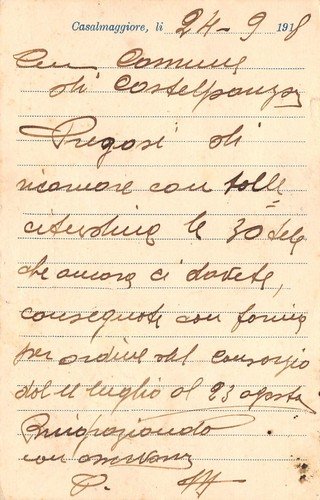 Casalmaggiore, li 24-9 1918
Comune
di Castelponzone
Pregasi di
con
le 30 tele
che ancora ci dovete,
consegnate con
per ordine del consorzio
dal 11 luglio al 23 agosto
Ringraziando
con osservanza